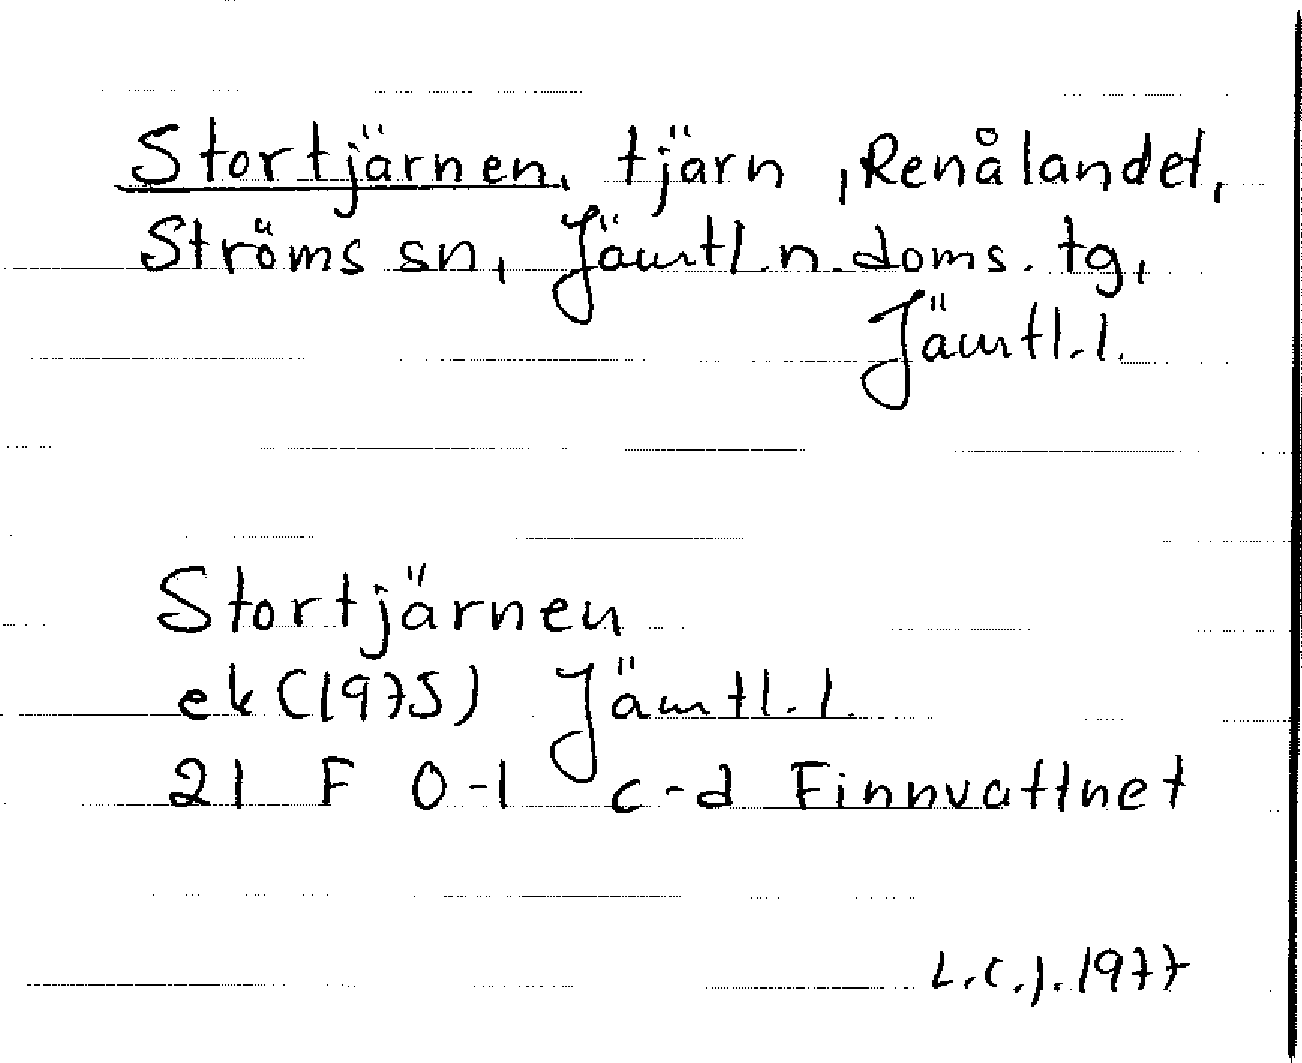 Stortjärnen, tjärn, Renålandet,
Ströms sn, Jämtl. n. doms. tg,
Jämtl. l.
Stortjärnen
ek (1975) Jämtl. l.
21 F 0-1 c-d Finnvattnet
L.C.J. 1977